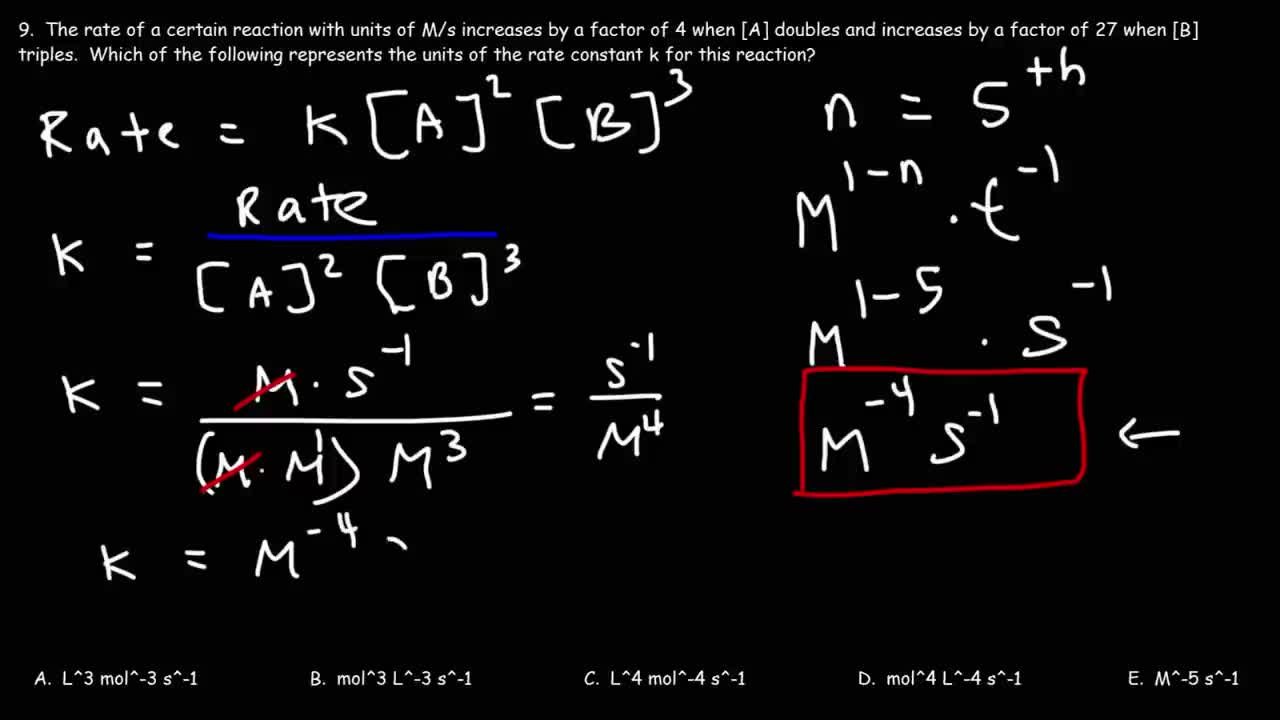 9. The rate of a certain reaction with units of M/s increases by a factor of 4 when [A] doubles and increases by a factor of 27 when [B]
triples. Which of the following represents the units of the rate constant k for this reaction?
Rate = K [A]^2 [B]^3
n = 5^th
K = Rate / [A]^2 [B]^3
M^1-n · t^-1
M^1-5 · s^-1
K = M · s^-1 / (M · M^1) M^3 = s^-1 / M^4
M^-4 s^-1 ←
K = M^-4
A. L^3 mol^-3 s^-1
B. mol^3 L^-3 s^-1
C. L^4 mol^-4 s^-1
D. mol^4 L^-4 s^-1
E. M^-5 s^-1